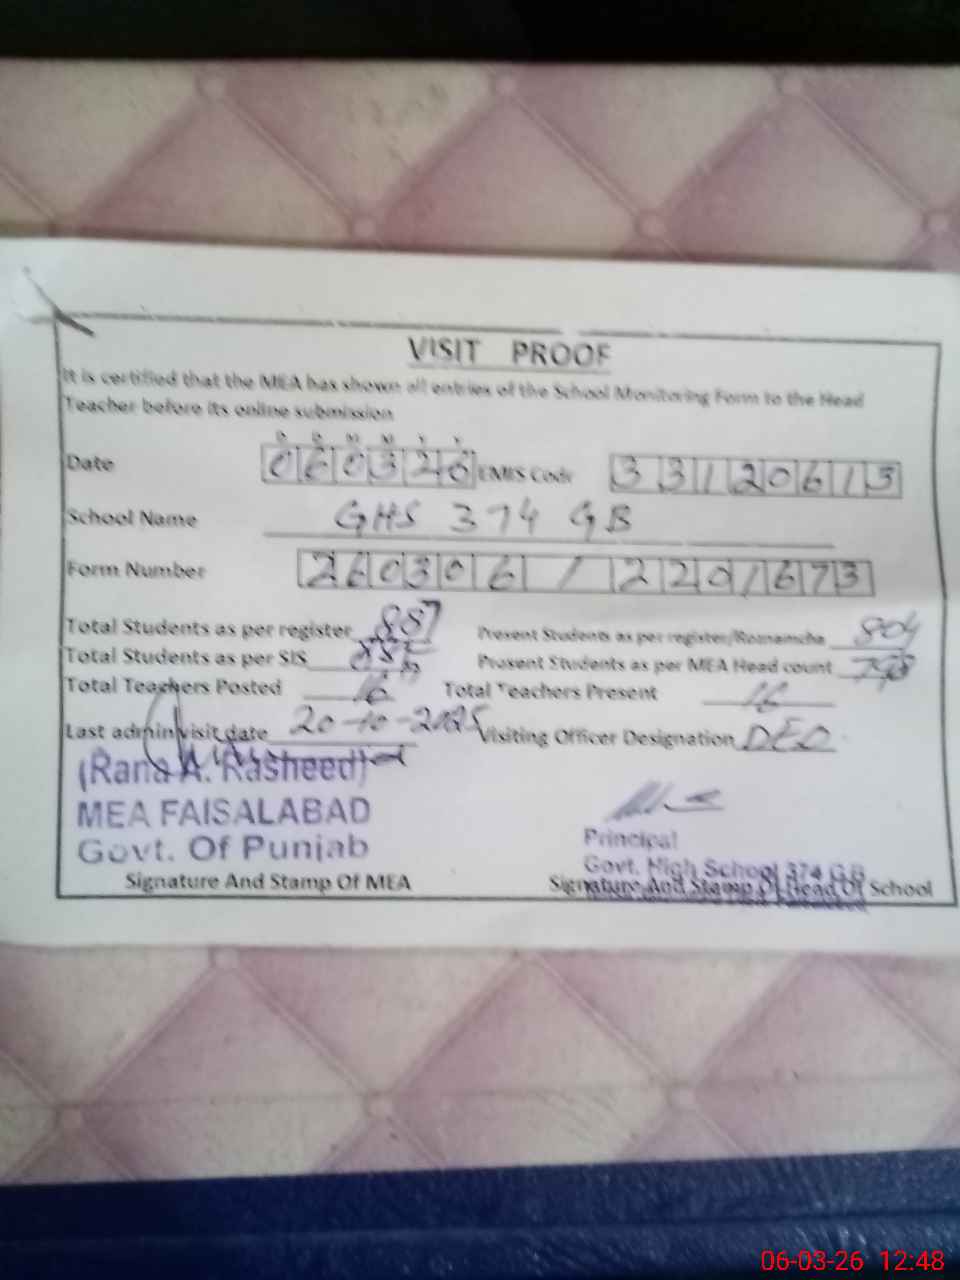 VISIT PROOF
It is certified that the MEA has shown all entries of the School Monitoring Form to the Head
Teacher before its online submission
D D M M Y Y
Date 060326 EMIS Code 33120613
School Name GHS 374 GB
Form Number 260306/2201673
Total Students as per register 887 Present Students as per register/Roznamcha 804
Total Students as per SIS Present Students as per MEA Head count 798
Total Teachers Posted 16 Total Teachers Present 16
Last admin visit date 20-10-2025 Visiting Officer Designation DEO
(Rana A. Rasheed)
MEA FAISALABAD
Govt. Of Punjab
Principal
Govt. High School 374 G.B
Signature And Stamp Of MEA Signature And Stamp Of Head Of School
06-03-26 12:48